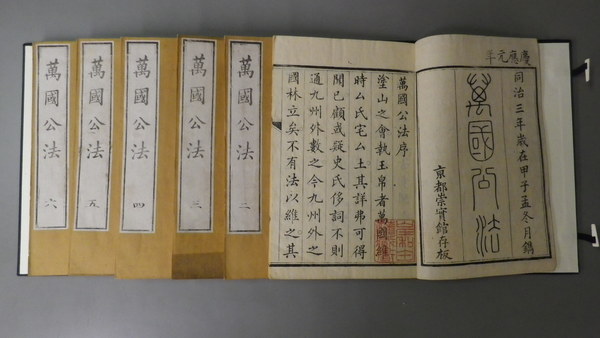 慶應元年
同治三年歲在甲子孟冬月鐫
萬國公法
京都崇實館存板
萬國公法序
塗山之會執玉帛者萬國維
時厶氏宅厶土其詳弗可得
聞已顧或疑史氏侈詞不則
通九州外數之今九州外之
國林立矣不有法以維之其
萬國公法 二
萬國公法 三
萬國公法 四
萬國公法 五
萬國公法 六